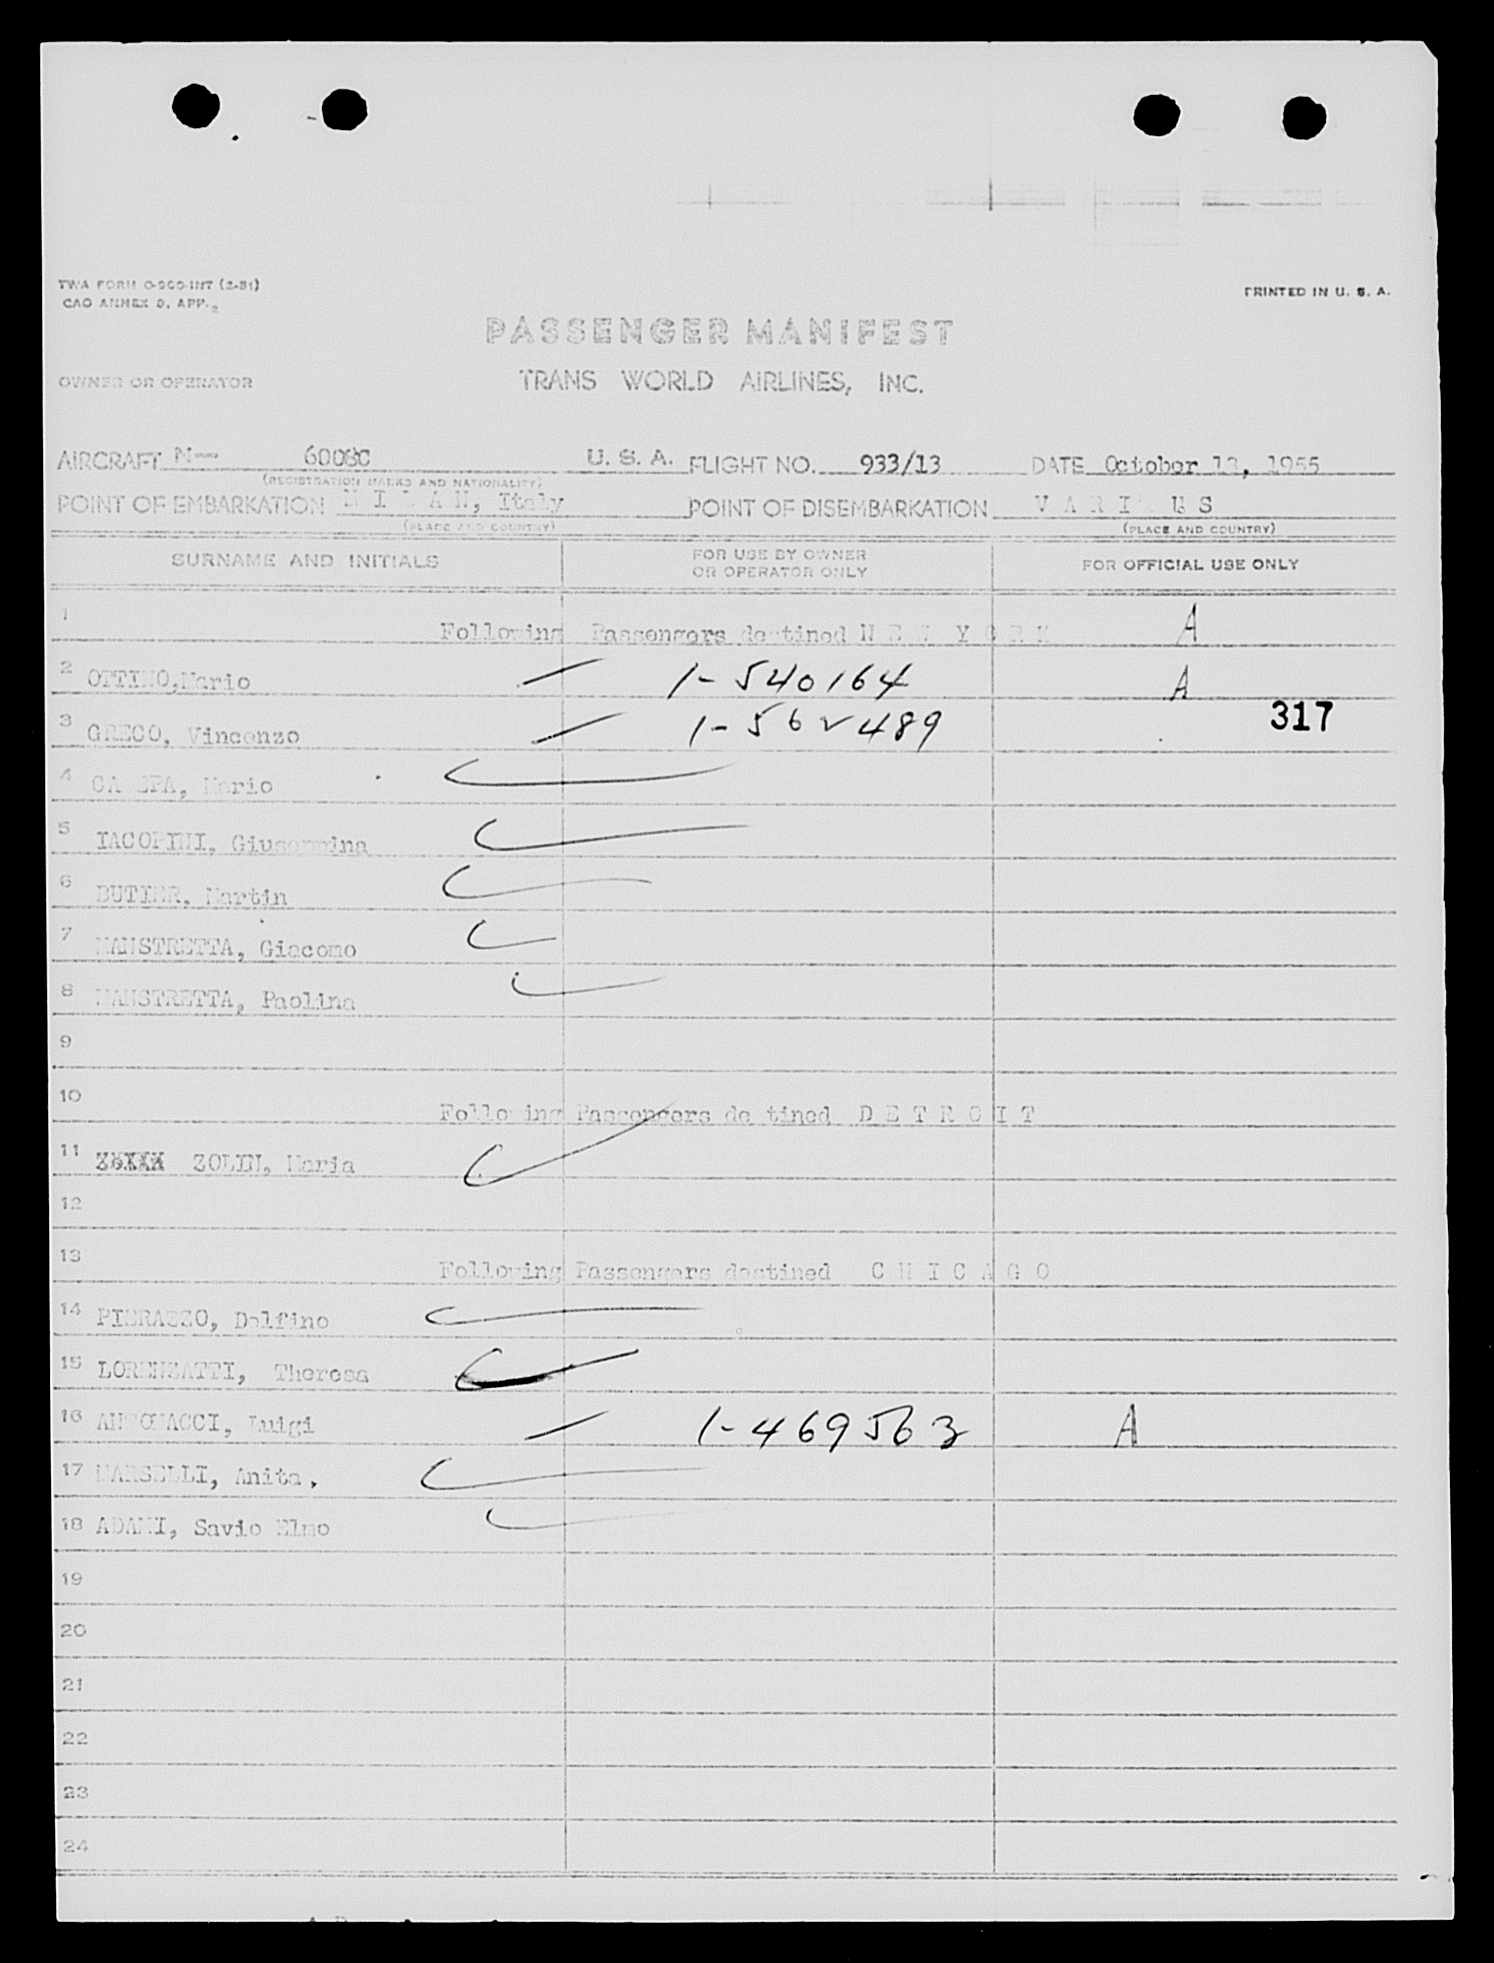 TWA FORM O-900-INT (2-51)
CAO ANNEX 9, APP. 2
PRINTED IN U. S. A.
PASSENGER MANIFEST
OWNER OR OPERATOR TRANS WORLD AIRLINES, INC.
AIRCRAFT N-- 6006C U. S. A. FLIGHT NO. 933/13 DATE October 13, 1955
(REGISTRATION MARKS AND NATIONALITY)
POINT OF EMBARKATION M I L A N, Italy POINT OF DISEMBARKATION V A R I U S
(PLACE AND COUNTRY) (PLACE AND COUNTRY)
SURNAME AND INITIALS FOR USE BY OWNER OR OPERATOR ONLY FOR OFFICIAL USE ONLY
1 Following Passengers destined N E W Y O R K A
2 OTTINO, Mario 1-540164 A
3 GRECO, Vincenzo 1-562489 317
4 Mario
5 IACOPINI, Giuseppina
6 Martin
7 MANSTRETTA, Giacomo
8 MANSTRETTA, Paolina
9
10 Following Passengers destined D E T R O I T
11 ZOLIN, Maria
12
13 Following Passengers destined C H I C A G O
14 Delfino
15 LORENZATTI, Theresa
16 ANTONACCI, Luigi 1-469563 A
17 MARSELLI, Anita.
18 ADAMI, Savio Elmo
19
20
21
22
23
24